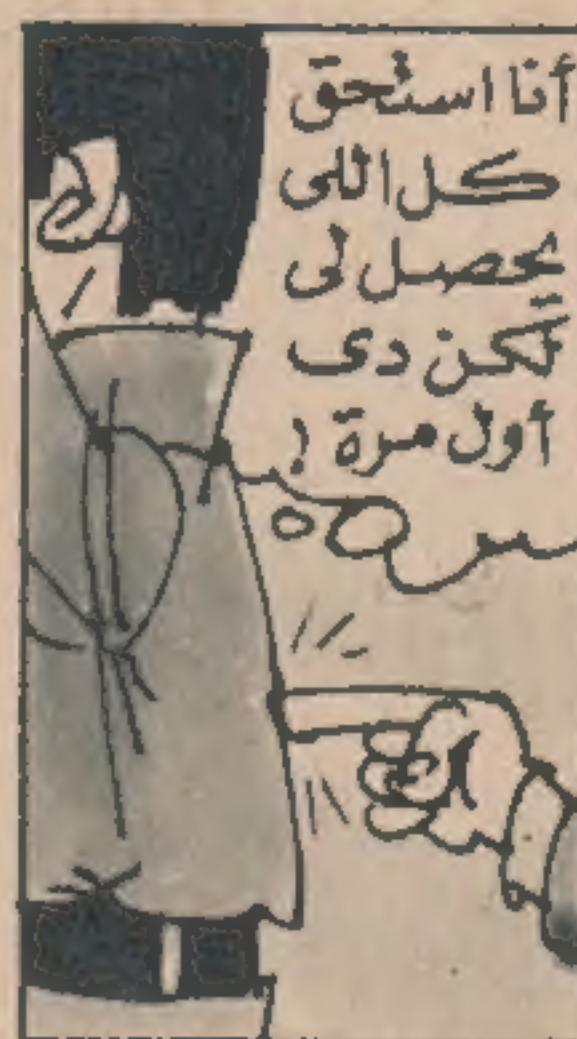 أنا استحق
كل اللى
يحصل لى
لكن دى
أول مرة !